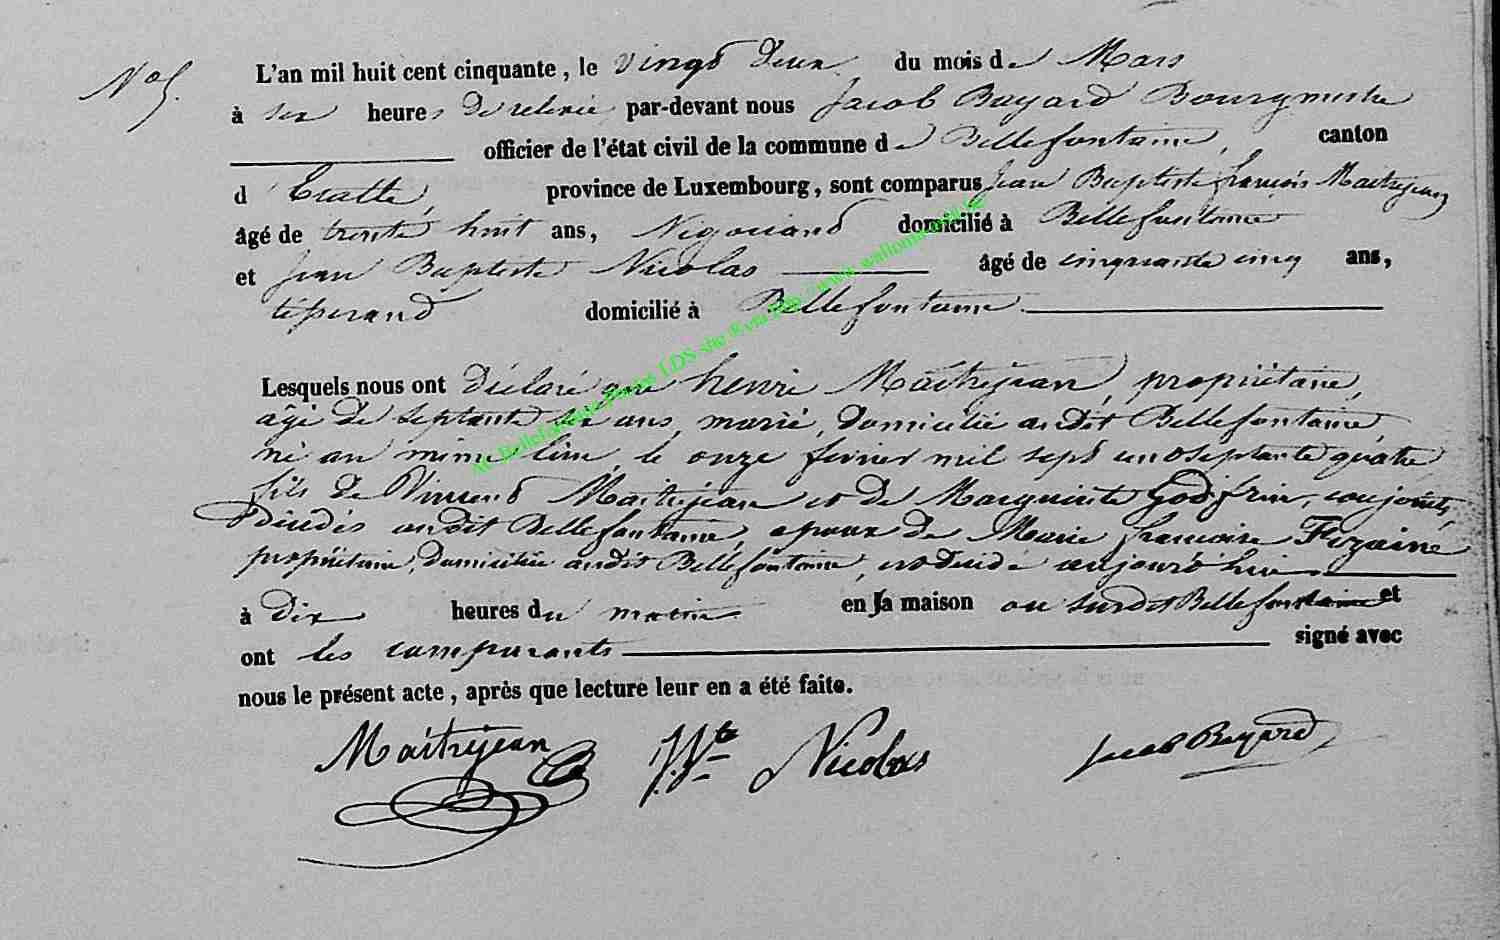 No 5.
L'an mil huit cent cinquante, le vingt deux du mois de Mars
à six heures de relevée, par-devant nous Jacob Bayard Bourgmestre
officier de l'état civil de la commune de Bellefontaine, canton
d'Etalle, province de Luxembourg, sont comparus Jean Baptiste françois Maitrejean
âgé de trente huit ans, Négociand domicilié à Bellefontaine
et Jean Baptiste Nicolas âgé de cinquante cinq ans,
tisserand domicilié à Bellefontaine.
Lesquels nous ont déclaré que henri Maitrejean, propriétaire,
âgé de septante six ans, marié, domicilié audit Bellefontaine,
né au même lieu, le onze février mil sept cent septante quatre
fils de Vincent Maitrejean et de Marguerite Godfrin, conjoints,
décédés audit Bellefontaine, epoux de Marie francoise Fozaine
propriétaire, domiciliée audit Bellefontaine, est décédé aujourd'hui
à dix heures du matin en sa maison au susdit Bellefontaine et
ont les comparants signé avec
nous le présent acte, après que lecture leur en a été faite.
Maitrejean J. Bte Nicolas Jacob Bayard